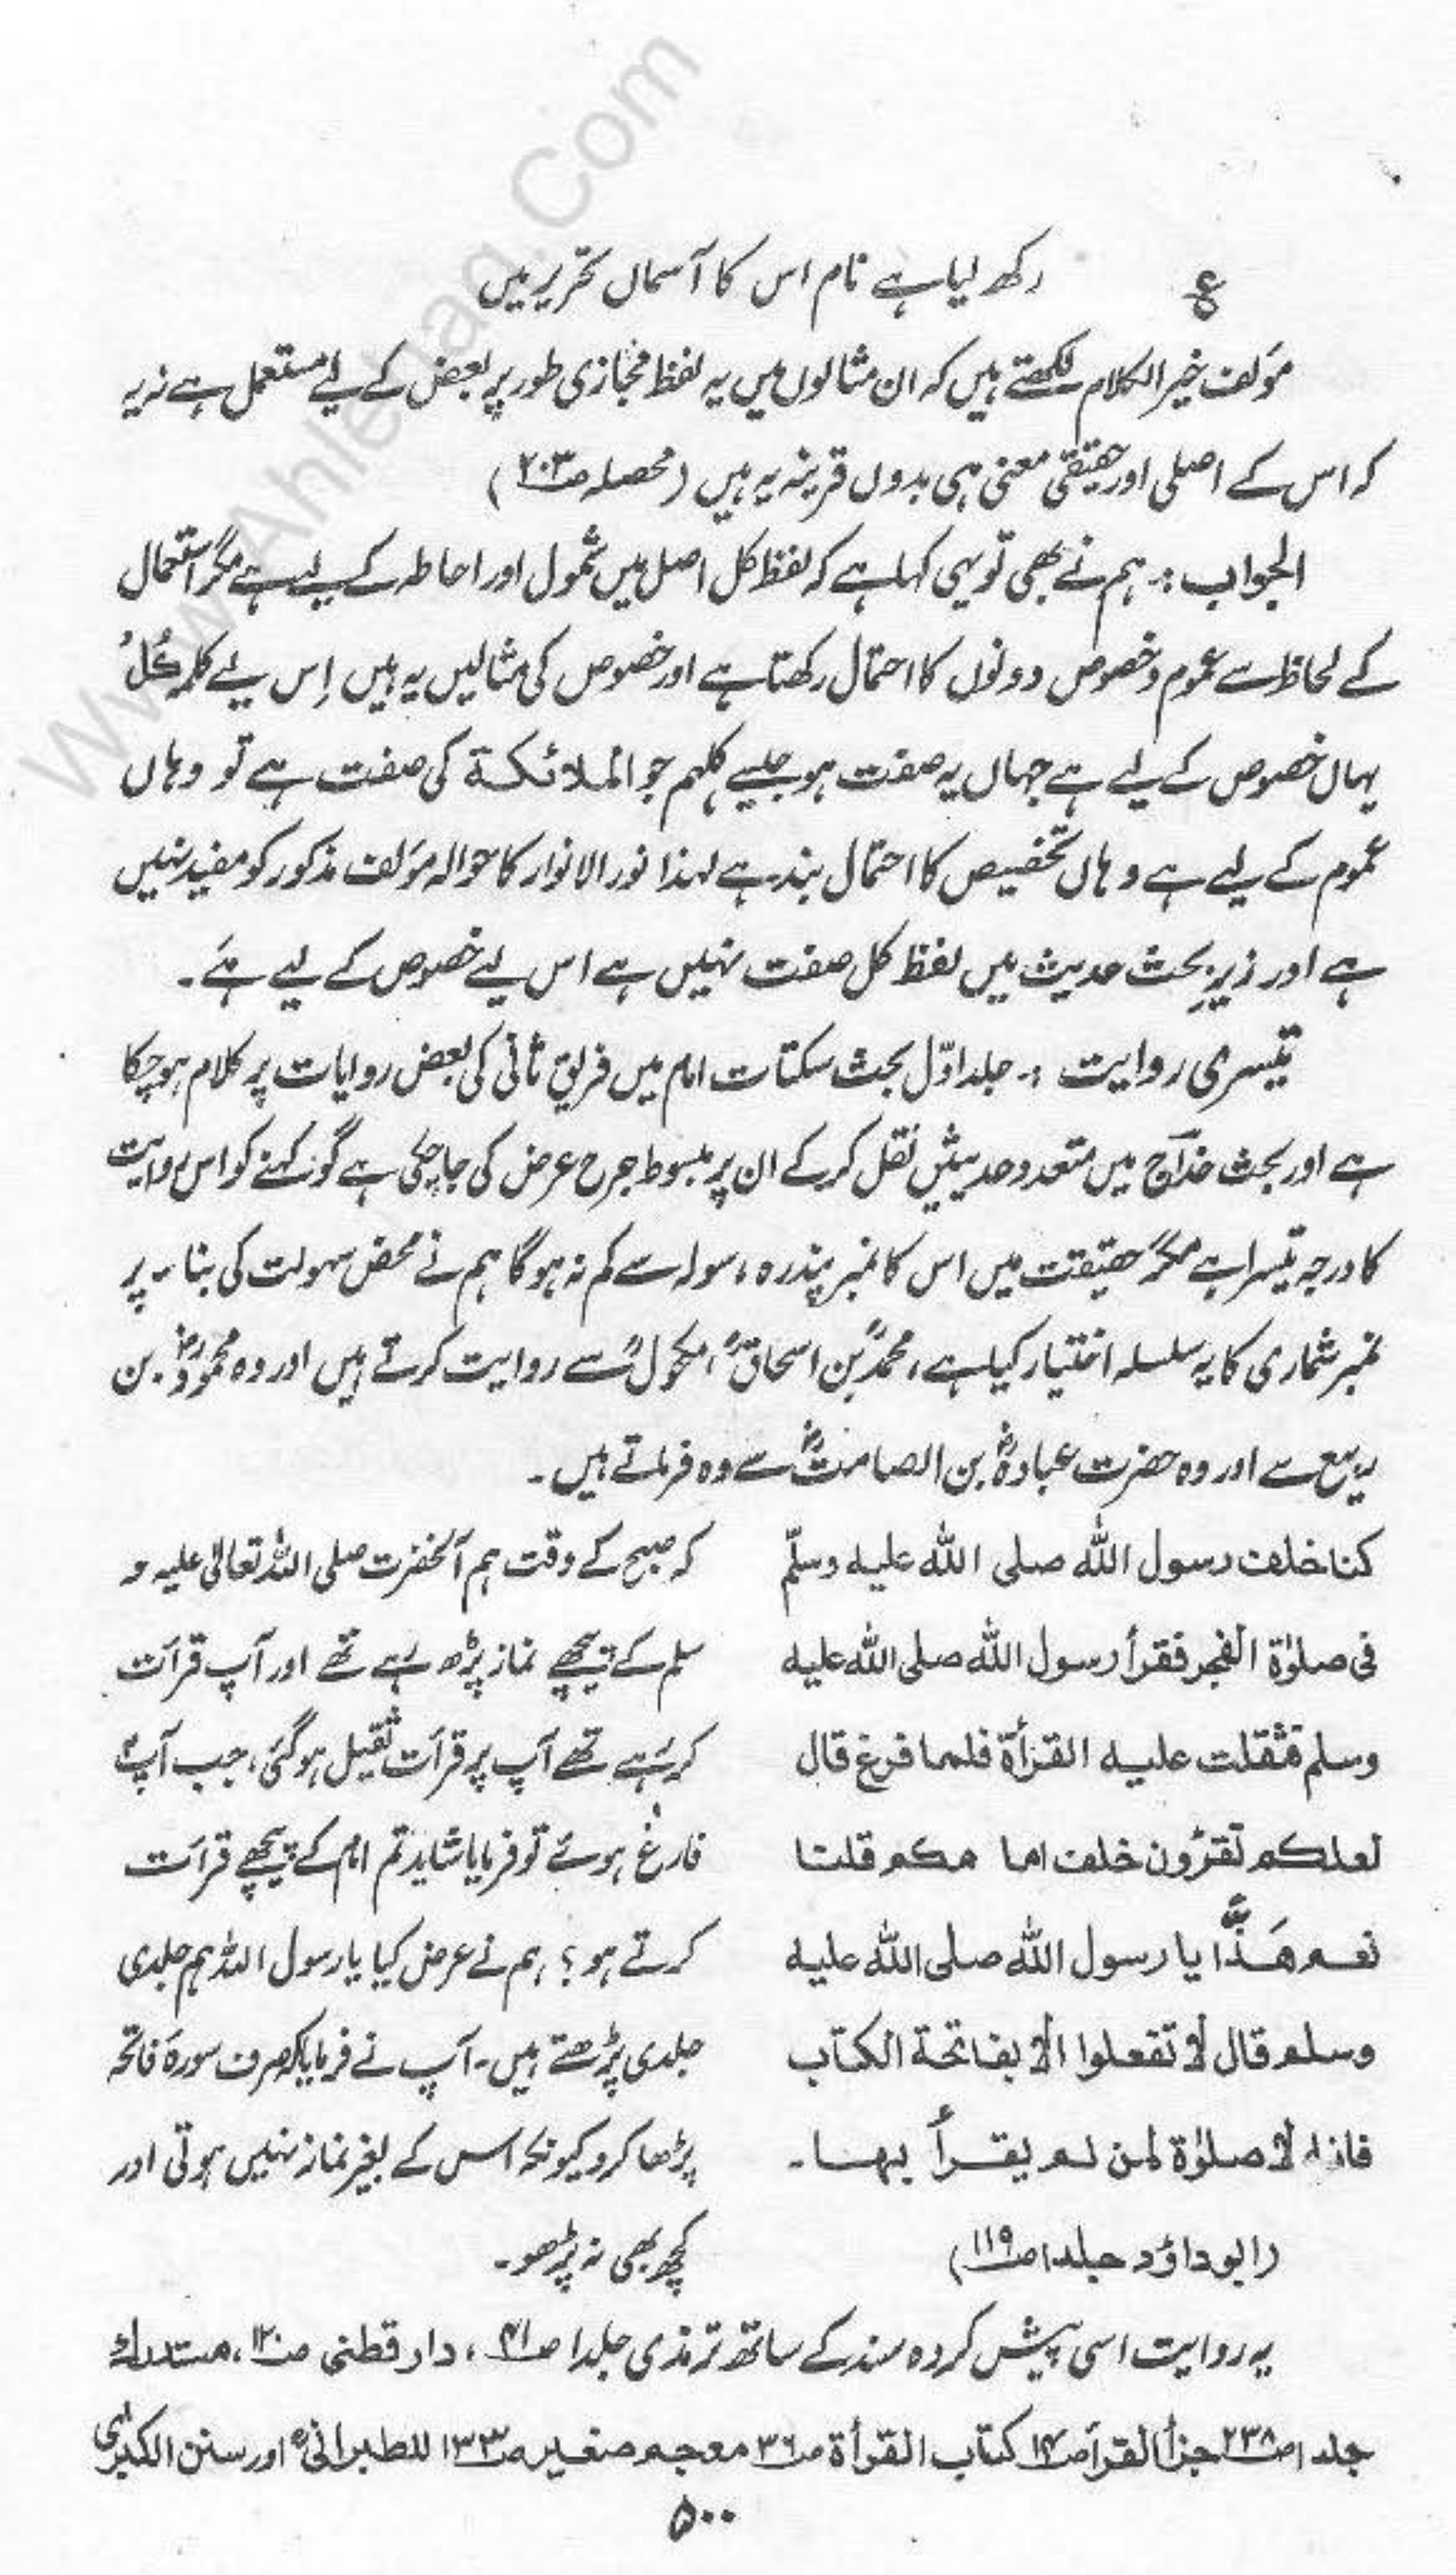 ع رکھ لیا ہے نام اس کا آسمال تحریر میں
مؤلف خیر الکلام لکھتے ہیں کہ ان مثالوں میں یہ لفظ مجازی طور پر بعض کے لیے مستعمل ہے نہ یہ
کہ اس کے اصلی اور حقیقی معنی ہی بدوں قرینہ یہ ہیں (محصلہ ص۲۰۳)
الجواب :۔ ہم نے بھی تو یہی کہا ہے کہ لفظ کل اصل میں شمول اور احاطہ کے لیے ہے مگر استعمال
کے لحاظ سے عموم و خصوص دونوں کا احتمال رکھتا ہے اور خصوص کی مثالیں یہ ہیں اِس لیے کلمہ کُلُّ
یہاں خصوص کے لیے ہے جہاں یہ صفت ہو جیسے کلہم جو الملائکۃ کی صفت ہے تو وہاں
عموم کے لیے ہے وہاں تخصیص کا احتمال بند ہے لہذا نور الانوار کا حوالہ مؤلف مذکور کو مفید نہیں
ہے اور زیرِ بحث حدیث میں لفظ کل صفت نہیں ہے اس لیے خصوص کے لیے ہے۔
تیسری روایت :۔ جلد اوّل بحث سکتات امام میں فریق ثانی کی بعض روایات پر کلام ہو چکا
ہے اور بحث خداج میں متعدد حدیثیں نقل کر کے ان پر مبسوط جرح عرض کی جا چکی ہے گو کہنے کو اس روایت
کا درجہ تیسرا ہے مگر حقیقت میں اس کا نمبر پندرہ، سولہ سے کم نہ ہوگا ہم نے محض سہولت کی بناء پر
نمبر شماری کا یہ سلسلہ اختیار کیا ہے، محمدؒ بن اسحاقؒ، مکحولؒ سے روایت کرتے ہیں اور وہ محمودؓ بن
ربیع سے اور وہ حضرت عبادہؓ بن الصامتؓ سے وہ فرماتے ہیں۔
کنا خلف رسول اللہ صلی اللہ علیہ وسلّم
فی صلوٰۃ الفجر فقرأ رسول اللہ صلی اللہ علیہ
وسلم فثقلت علیہ القرأۃ فلما فرغ قال
لعلکم تقرؤن خلف امامکم قلنا
نعم ھَذًّا یا رسول اللہ صلی اللہ علیہ
وسلم قال لا تفعلوا الا بفاتحۃ الکتاب
فانہ لا صلوٰۃ لمن لم یقرأ بہا۔
(ابو داؤد جلد ۱ ص۱۱۹)
کہ صبح کے وقت ہم آنحضرت صلی اللہ تعالیٰ علیہ و
سلم کے پیچھے نماز پڑھ رہے تھے اور آپ قرأت
کر رہے تھے آپ پر قرأت ثقیل ہو گئی، جب آپؐ
فارغ ہوئے تو فرمایا شاید تم امام کے پیچھے قرأت
کرتے ہو؟ ہم نے عرض کیا یا رسول اللہ ہم جلدی
جلدی پڑھتے ہیں۔ آپ نے فرمایا کہ صرف سورۃ فاتحہ
پڑھا کرو کیونکہ اس کے بغیر نماز نہیں ہوتی اور
کچھ بھی نہ پڑھو۔
یہ روایت اسی پیش کردہ سند کے ساتھ ترمذی جلد ۱ ص۴۱، دار قطنی ص۱۲۰، مستدرک
جلد ۱ ص۲۳۸ جزأ القرأۃ ص۱۴ کتاب القرأۃ ص۳۶ معجم صغیر ص۱۳۳ للطبرانیؒ اور سنن الکبریٰ
۵۰۰
Www.Ahlehaq.Com